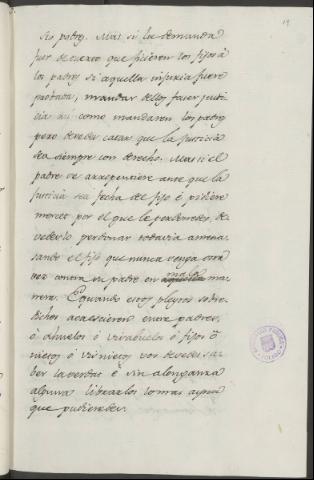 19
los padres. Mas si la demanda
fur de tuerto que ficieren los fijos a
los padres si aquella injuria fuere
probada, mandar dello facer justi-
cia asi como mandaren los padres
pero debedes catar que la justicia
sea siempre con derecho. Mas si el
padre se arrepentiere ante que la
justicia sea fecha del fijo é pidiere
merced por el que le perdonedes, de-
vedeslo perdonar todavia amena-
zando el fijo que nunca venga otra
vez contra su padre en mala ma-
nera. E quando estos pleytos sobre-
dichos acaescieren entre padres,
ó abuelos ó visabuelos ó fijos ó
nietos ó visnietos vos devedes sa-
ber la verdat é sin alonganza
alguna librarlos lo mas ayna
que pudieredes.
TOLEDO